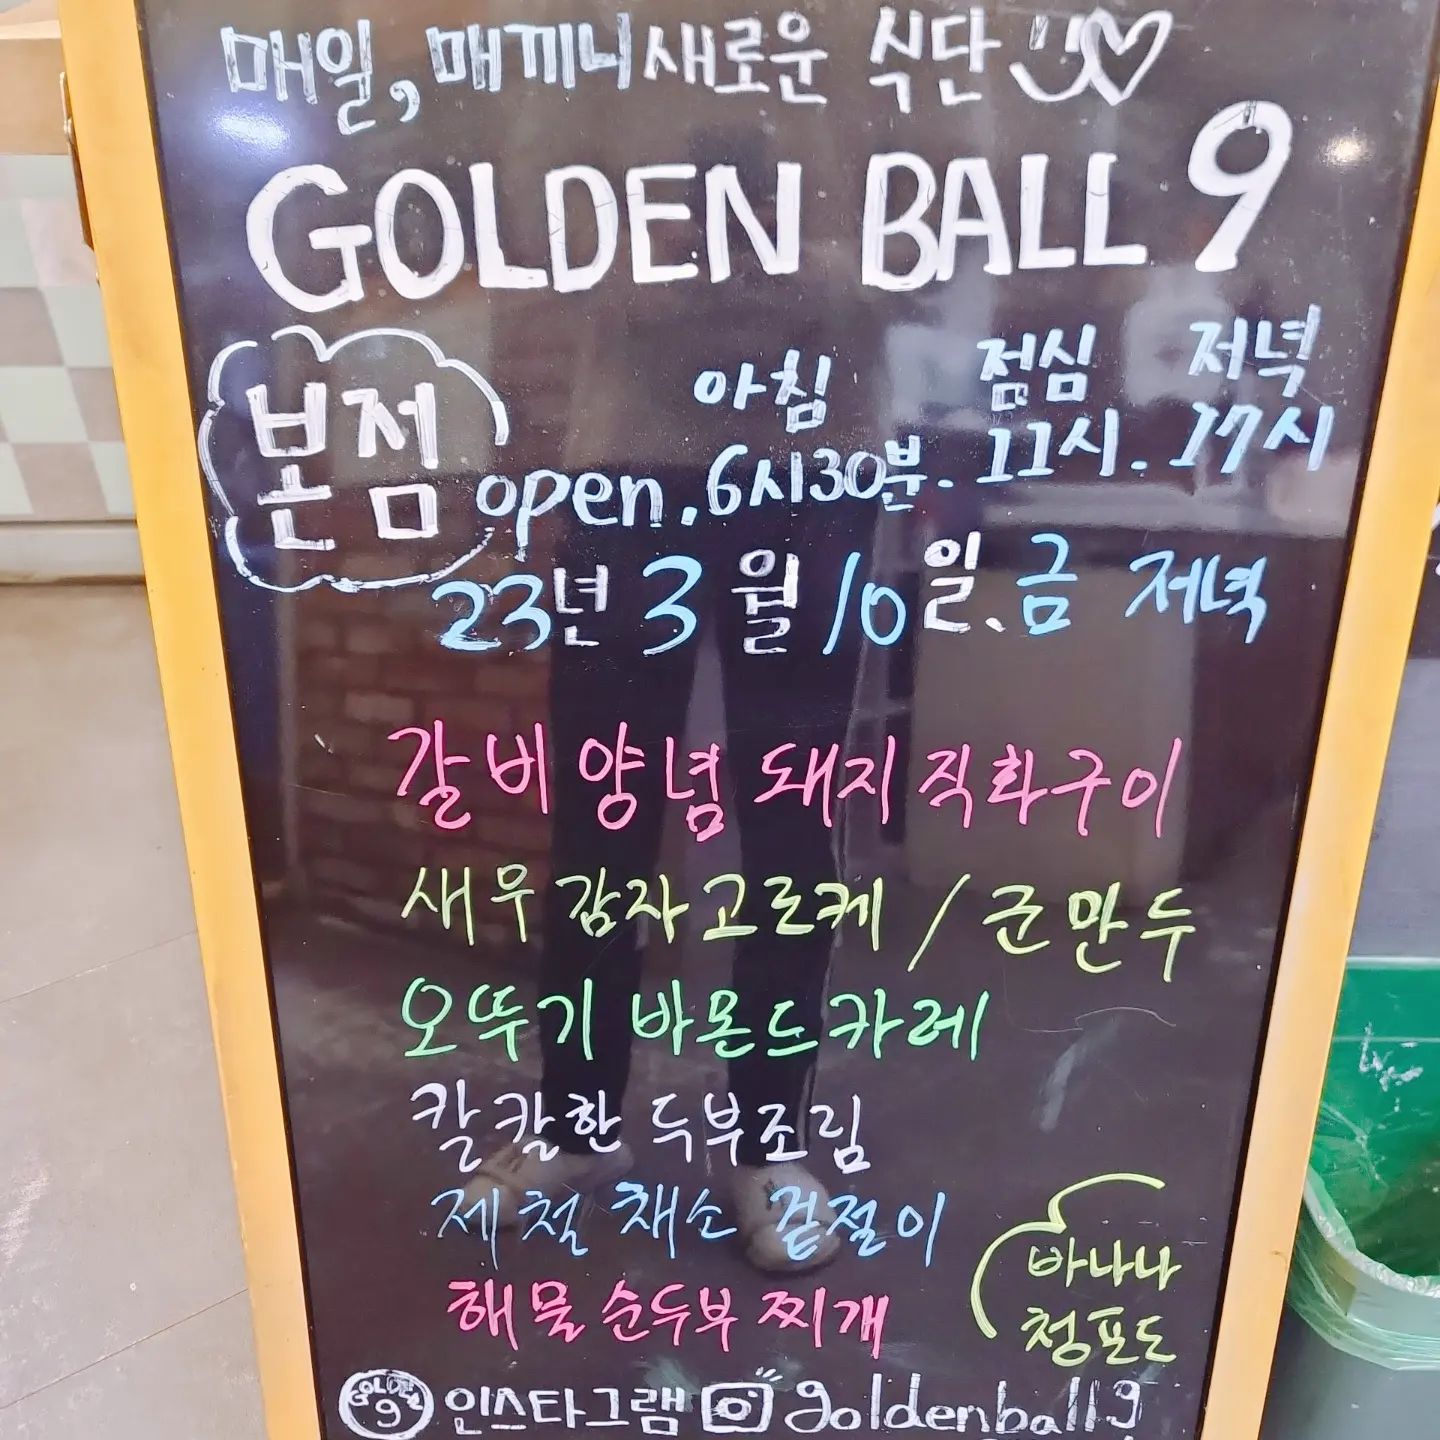 매일, 매끼니 새로운 식단
GOLDEN BALL 9
본점
아침 점심 저녁
open. 6시30분. 11시. 17시
23년 3월 10일. 금 저녁
갈비양념 돼지직화구이
새우감자고로케 / 군만두
오뚜기 바몬드카레
칼칼한 두부조림
제철 채소 겉절이
해물순두부찌개
바나나
청포도
GOLDEN 9 인스타그램 goldenball9